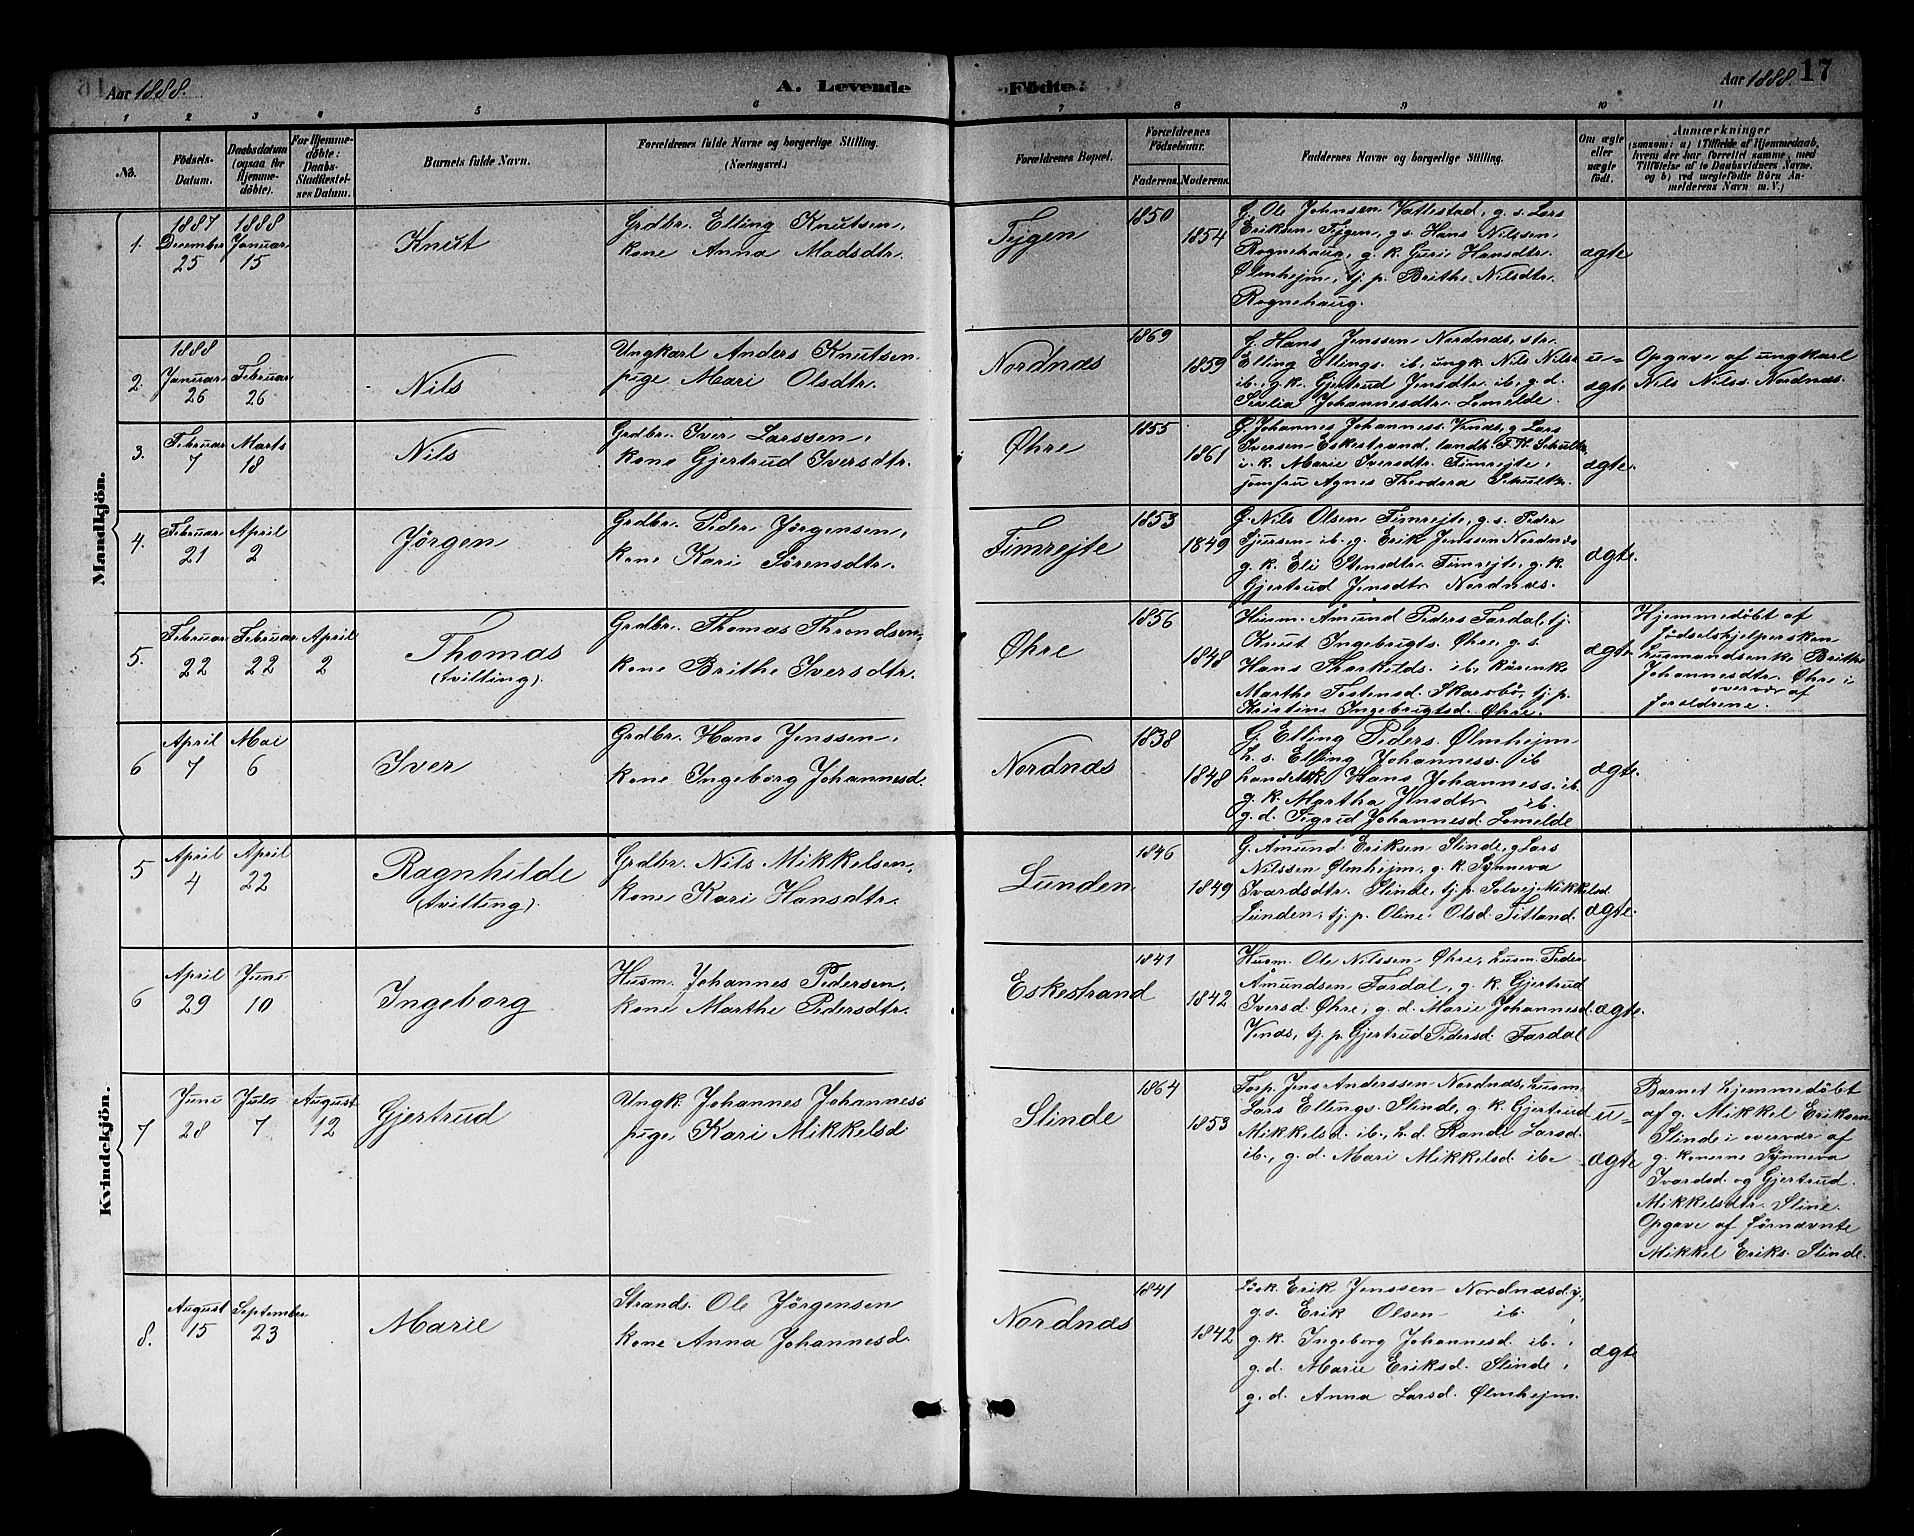 Aar 1888.
A. Levende
Födte:
Aar 1888.
17
1 2 3 4 5 6 7 8 9 10 11
No.
Födsels-
Datum.
Daabsdatum
(ogsaa for
Hjemme-
döbte).
For Hjemme-
döbte:
Daabs
Stadfæstel-
ses Datum.
Barnets fulde Navn.
Forældrenes fulde Navne og borgerlige Stilling.
(Næringsvei.)
Forældrenes Bopæl.
Forældrenes
Födselsaar.
Faderens.
Moderens.
Faddernes Navne og borgerlige Stilling.
Om ægte
eller
uægte
födt.
Anmærkninger
(saasom: a) i Tilfælde af Hjemmedaab,
hvem der har forrettet samme, med
Tilföielse af to Daabsvidners Navne,
og b) ved uægtefödte Börn An-
melderens Navn m. V.)
Mandkjön.
1.
1887
December
25
1888
Januar
15
Knut
Grdbr. Elling Knutsen,
kone Anna Madsdtr.
Fejgen
1850
1854
G. Ole Johnsen Vallestad, g. s. Lars
Eriksen Fejgen, g. s. Hans Nilssen
Rognehaug, g. k. Guri Hansdtr.
Ølmhejm, tj. p. Brithe Nilsdtr.
Rognehaug.
ægte
2.
1888
Januar
26
Februar
26
Nils
Ungkarl Anders Knutsen
pige Mari Olsdtr.
Nordnæs
1869
1859
G. Hans Jenssen Nordnæs, str.
Elling Ellings. ib, ungk. Nils Nilss
ib. g. k. Gjertrud Jensdtr. ib, g. d.
Sivlia Johannesdtr. Lomelde.
u-
ægte
Opgave af ungkarl
Nils Nilss. Nordnæs.
3.
Februar
7
Marts
18
Nils
Grdbr. Iver Larssen,
kone Gjertrud Iversdtr.
Øhre
1855
1861
G. Johannes Johanness. Vnæs, g. Lars
Iversen Eskestrand, landh. F. H. Schultz,
g. k. Marie Iversdtr. Fimrejte,
jomfru Agnes Theodora Schultz.
ægte.
4.
Februar
21
April
2
Jörgen
Grdbr. Peder Jörgensen,
kone Kari Sörensdtr.
Fimrejte
1853
1849
G. Nils Olsen Fimrejte, g. s. Peder
Sjursen ib, g. Erik Jenssen Nordnæs
g. k. Eli Stensdtr. Fimrejte, g. k.
Gjertrud Jensdtr Nordnæs.
ægte.
5.
Februar
22
Februar
22
April
2
Thomas
(tvilling).
Grdbr. Thomas Throndsen,
kone Brithe Iversdtr.
Øhre
1856
1848
Husm. Amund Peders Fardal, tj.
Knut Ingebrigts. Øhre, g. s.
Hans Thorkilds. ib, kårenk.
Marthe Tostensd. Skarsbö, tj. p.
Kristine Ingebrigtsd. Øhre.
ægte.
Hjemmedöbt af
födselshjelpersken
husmandsenke Brithe
Johannesdtr. Øhre i
overvær af
foreldrene.
6
April
7
Mai
6
Iver
Grdbr. Hans Jenssen,
kone Ingeborg Johannesd.
Nordnæs
1838
1848
G. Elling Peders. Ølmhejm
h. s. Elling Johanness. ib
handelsk. Hans Johanness. ib.
g. k. Martha Jensdtr ib.
g. d. Sigrid Johannesd. Lomelde
ægte.
Kvindekjön.
5
April
4
April
22
Ragnhilde
(tvilling).
Grdbr. Nils Mikkelsen,
kone Kari Hansdtr.
Lunden
1846
1849
G. Amund Eriksen Slinde, g. Lars
Nilssen Ølmhejm, g. k. Synneva
Ivardsdtr. Slinde, tj. p. Solvej Mikkelsd
Lunden, tj. p. Oline Olsd. Fitland.
ægte.
6
April
29
Juni
10
Ingeborg
Husm. Johannes Pedersen,
kone Marthe Pedersdtr.
Eskestrand
1841
1842
Husm. Ole Nilssen Øhre, husm. Peder
Amundsen Fardal, g. k. Gjertrud
Iversd. Øhre, g. d. Marie Johannesd.
Vnæs, tj. p. Gjertrud Pedersd. Fardal
ægte.
7
Juni
28
Juli
7
August
12
Gjertrud
Ungk. Johannes Johanness
pige Kari Mikkelsd.
Slinde
1864
1853
Forp. Jens Anderssen Nordnæs, husm.
Lars Ellings. Slinde, g. k. Gjertrud
Mikkelsd. ib., h. d. Rande Larsd.
ib., g. d. Mari Mikkelsd. ib.
u-
ægte
Barnet hjemmedöbt
af g. Mikkel Eriksen
Slinde i overvær af
g. konerne Synneva
Ivardsd. og Gjertrud
Mikkelsdtr. Sline.
Opgave af förnævnte
Mikkel Eriks. Slinde.
8.
August
15
September
23
Marie
Strands. Ole Jörgensen
kone Anna Johannesd.
Nordnæs
1841
1842
Erik Jenssen Nordnæs
g. s. Erik Olsen ib.,
g. k. Ingeborg Johannesd. ib.,
g. d. Marie Eriksd. Slinde,
g. d. Anna Larsd. Ølmhejm.
ægte